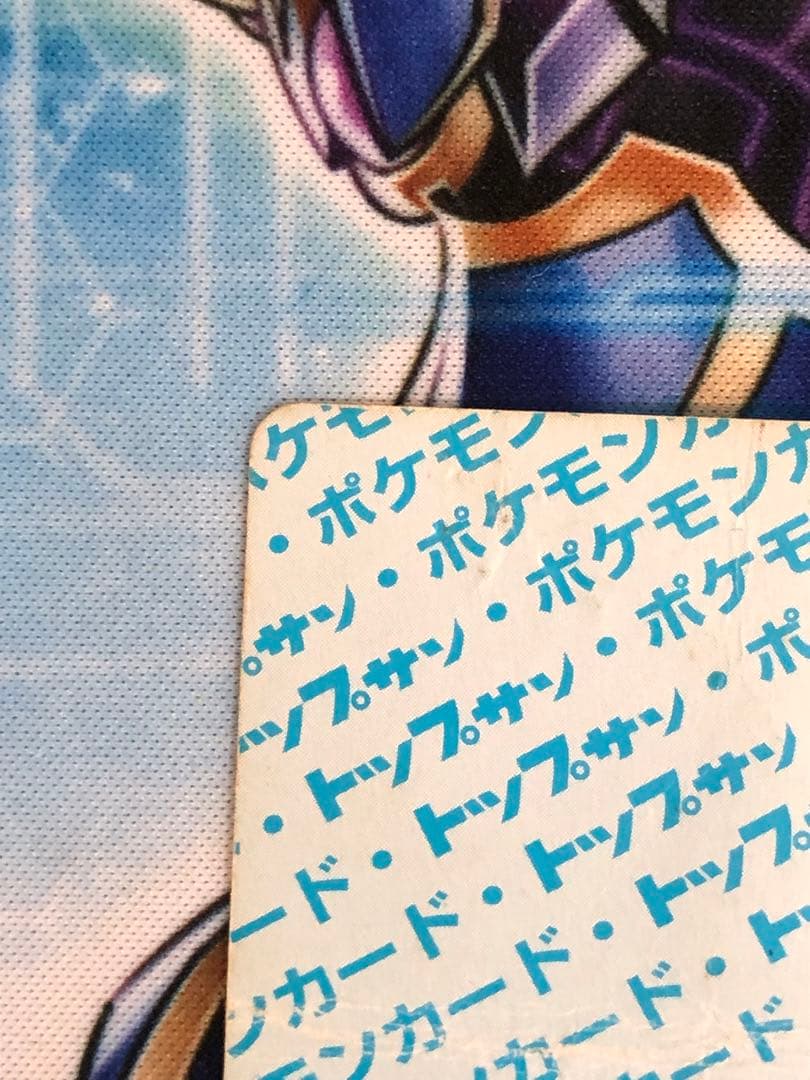 ケモ
・ポケモン
サン・ポケモンカ
ップサン・ポケモンカ
・トップサン・ポケモ
・トップサン・ポ
ード・トップサン
ンカード・トップ
モンカード・ト
ンカード
カード